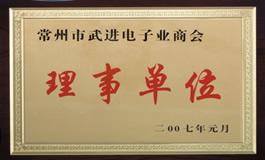 常州市武进电子业商会
理事单位
二00七年元月